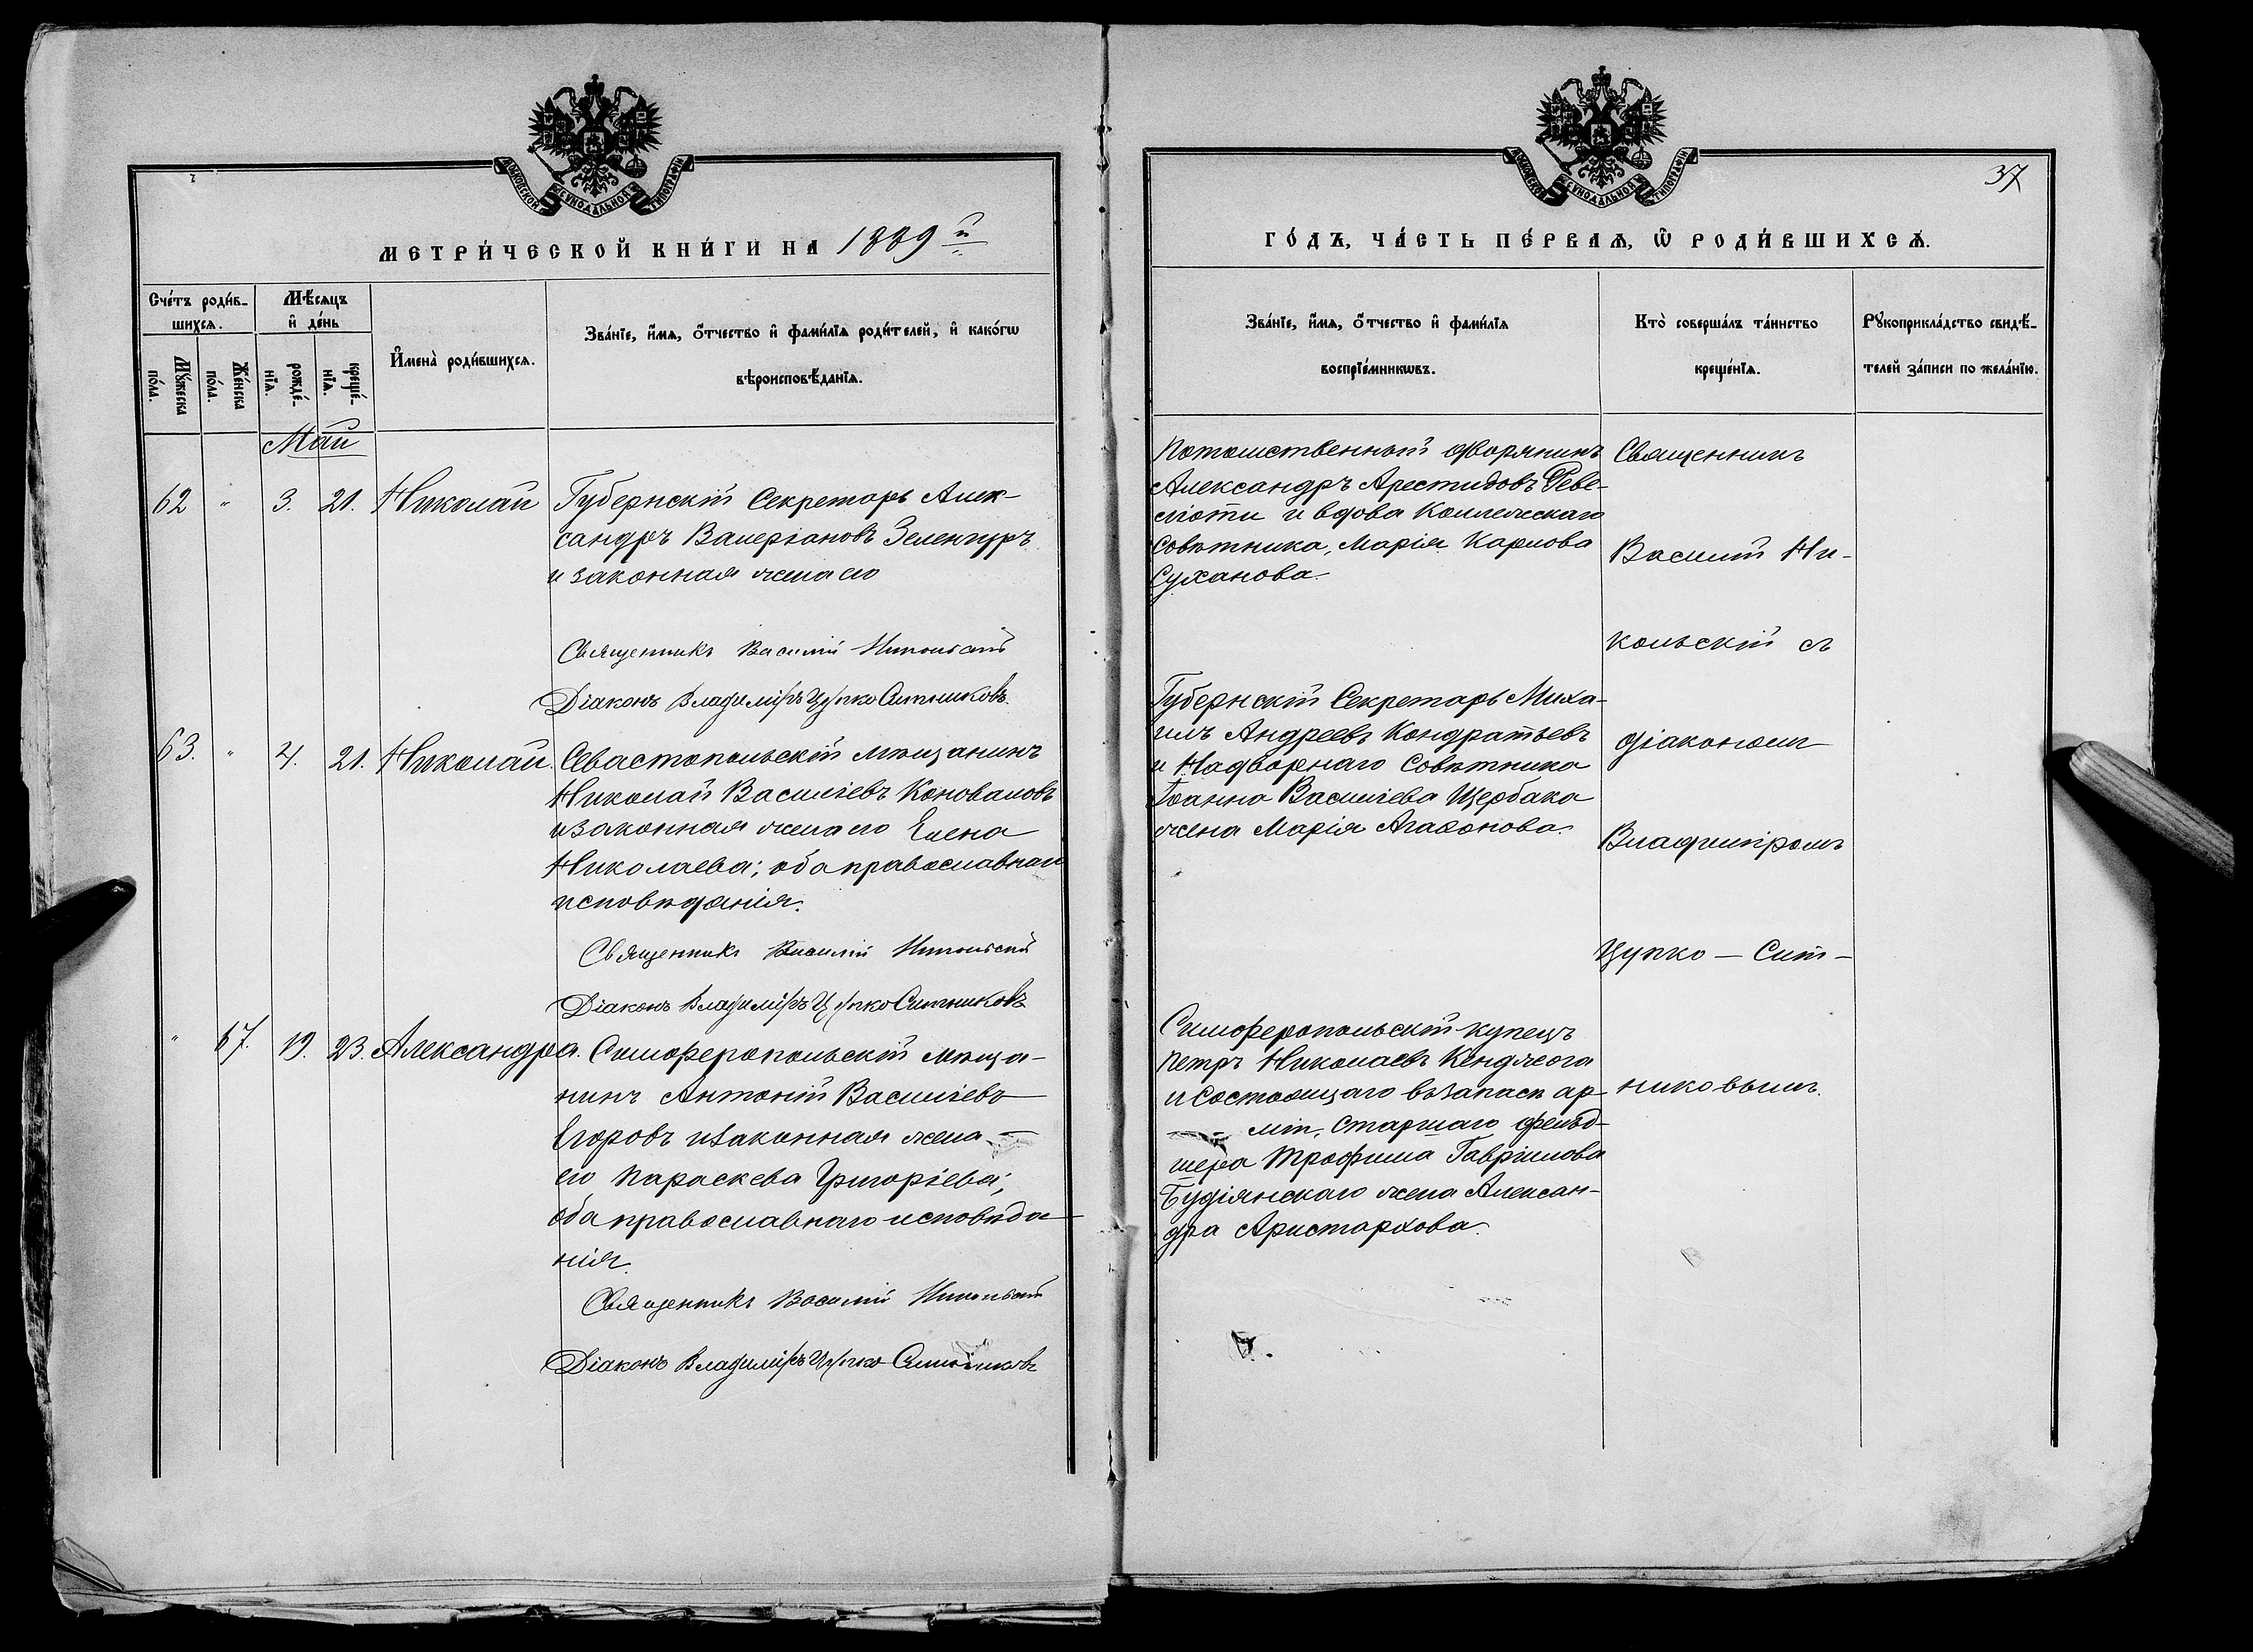 МОСКОВСКОЙ СѴНОДАЛЬНОЙ ТИПОГРАФІИ
МЕТРИ́ЧЕСКОЙ КНИ́ГИ НА 1889й
Сче́тъ роди́в-
шихсѧ.
Мѣ́сѧцъ
и҆ де́нь
Мꙋ́жеска
по́ла.
Же́нска
по́ла.
рожде́-
нїѧ.
креще́-
нїѧ.
И҆мена̀ роди́вшихсѧ.
Зва́нїе, и҆́мѧ, ѻ҆́тчество и҆ фами́лїѧ роди́телей, и҆ како́гѡ
вѣроисповѣ́данїѧ.
Май
62 " 3. 21. Николай
Губернскій Секретарь Алек-
сандръ Валеріановъ Зеленкуръ
и законная жена его
Священникъ Василій Никольскій
Діаконъ Владиміръ Цупко Ситниковъ
63. " 4. 21. Николай.
Севастопольскій мѣщанинъ
Николай Василіевъ Коноваловъ
и законная жена его Елена
Николаева; оба православнаго
исповѣданія.
Священникъ Василій Никольскій
Діаконъ Владиміръ Цупко Ситниковъ
" 67. 19. 23. Александра.
Симферопольскій мѣща-
нинъ Антоній Василіевъ
Егоровъ и законная жена
его Параскева Григоріева;
оба православнаго исповѣда-
нія.
Священникъ Василій Никольскій
Діаконъ Владиміръ Цупко Ситниковъ
МОСКОВСКОЙ СѴНОДАЛЬНОЙ ТИПОГРАФІИ
37
ГО́ДЪ, ЧА́СТЬ ПЕ́РВАѦ, Ѡ҆ РОДИ́ВШИХСѦ.
Зва́нїе, и҆́мѧ, ѻ҆́тчество и҆ фами́лїѧ
воспрїе́мникѡвъ.
Кто̀ соверша́лъ та́инство
креще́нїѧ.
Рꙋкоприкла́дство свидѣ́-
телей за́писи по жела́нїю.
Потомственный дворянинъ
Александръ Арестидовъ Реве-
ліоти и вдова Коллежскаго
Совѣтника, Марія Карлова
Суханова.
Губернскій Секретарь Миха-
илъ Андреевъ Кондратьевъ
и Надворнаго Совѣтника
Іоанна Василіева Щербака
жена Марія Агаѳонова.
Симферопольскій купецъ
Петръ Николаевъ Кенджога
и состоящаго въ запасѣ ар-
міи, старшаго фельд-
шера Трофима Гавріилова
Будіянскаго жена Алексан-
дра Аристархова.
Священникъ
Василій Ни-
кольскій съ
діакономъ
Владиміромъ
Цупко — Сит-
никовымъ.